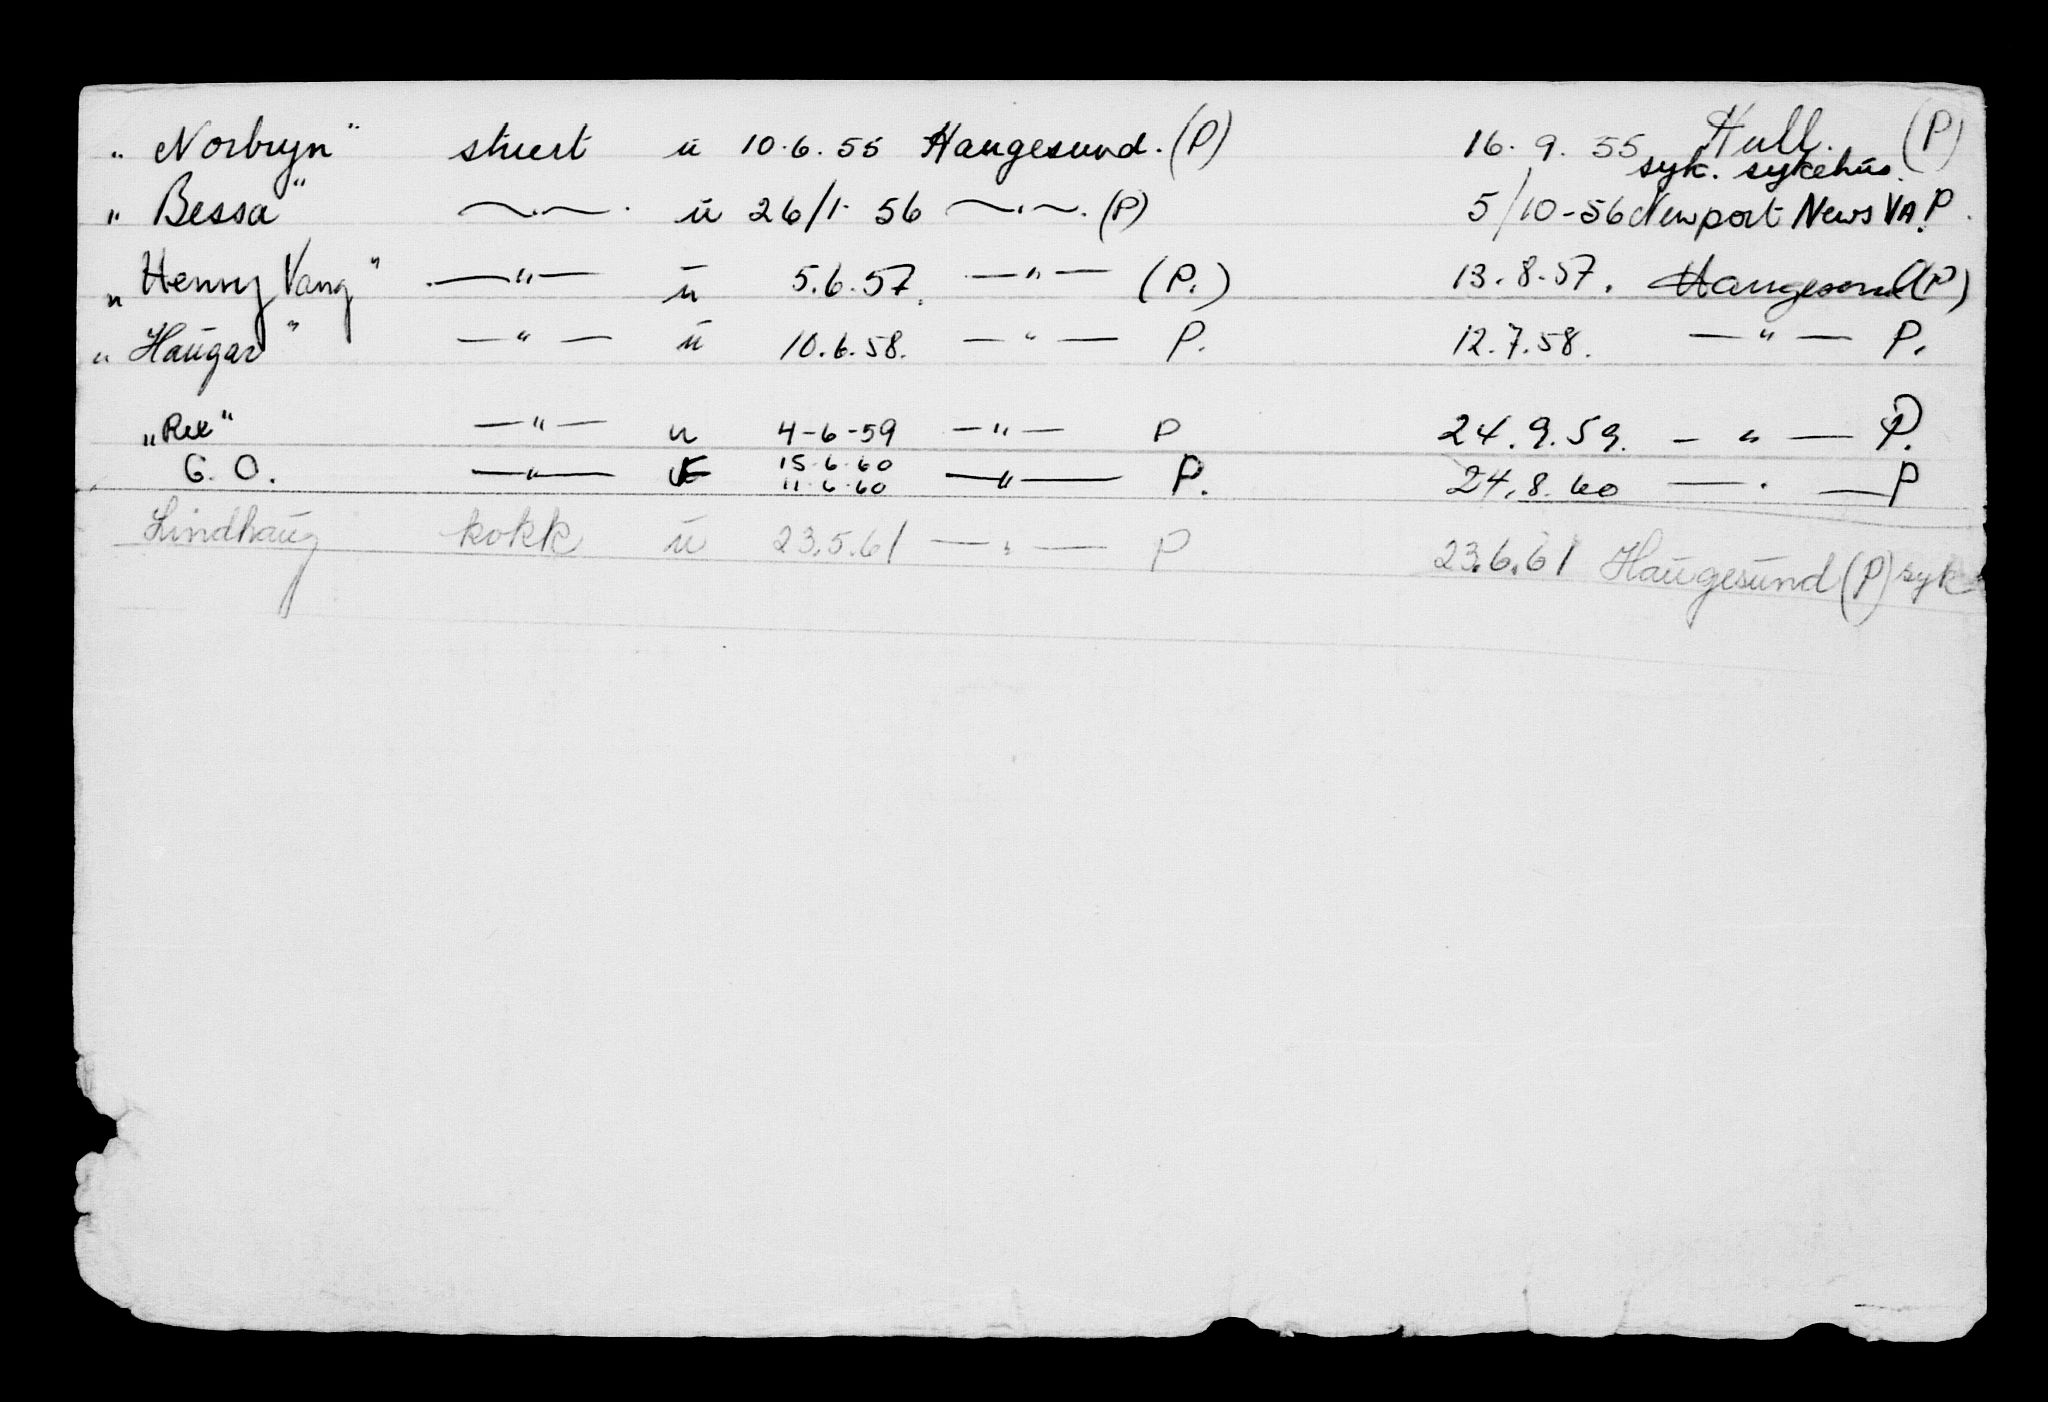 „ Norbryn" stuert u 10.6.55 Haugesund. (P) 16.9.55 Hull. (P)
syk. sykehus.
„ Bessa" —〃—. u 26/1-56 —〃—. (P) 5/10-56 Newport News VA. P.
„ Henny Vang" —〃— u 5.6.57. —〃— (P.) 13.8.57. Haugesund (P)
„ Haugar" —〃— u 10.6.58. —〃— P. 12.7.58. —〃— P.
„ Rex" —〃— u 4-6-59 —〃— P 24.9.59. —〃— P.
15.6.60
G.O. —〃— 11.6.60 —〃— P. 24.8.60 —〃— P
Lindhaug kokk u 23.5.61 —〃— P 23.6.61 Haugesund (P) syk